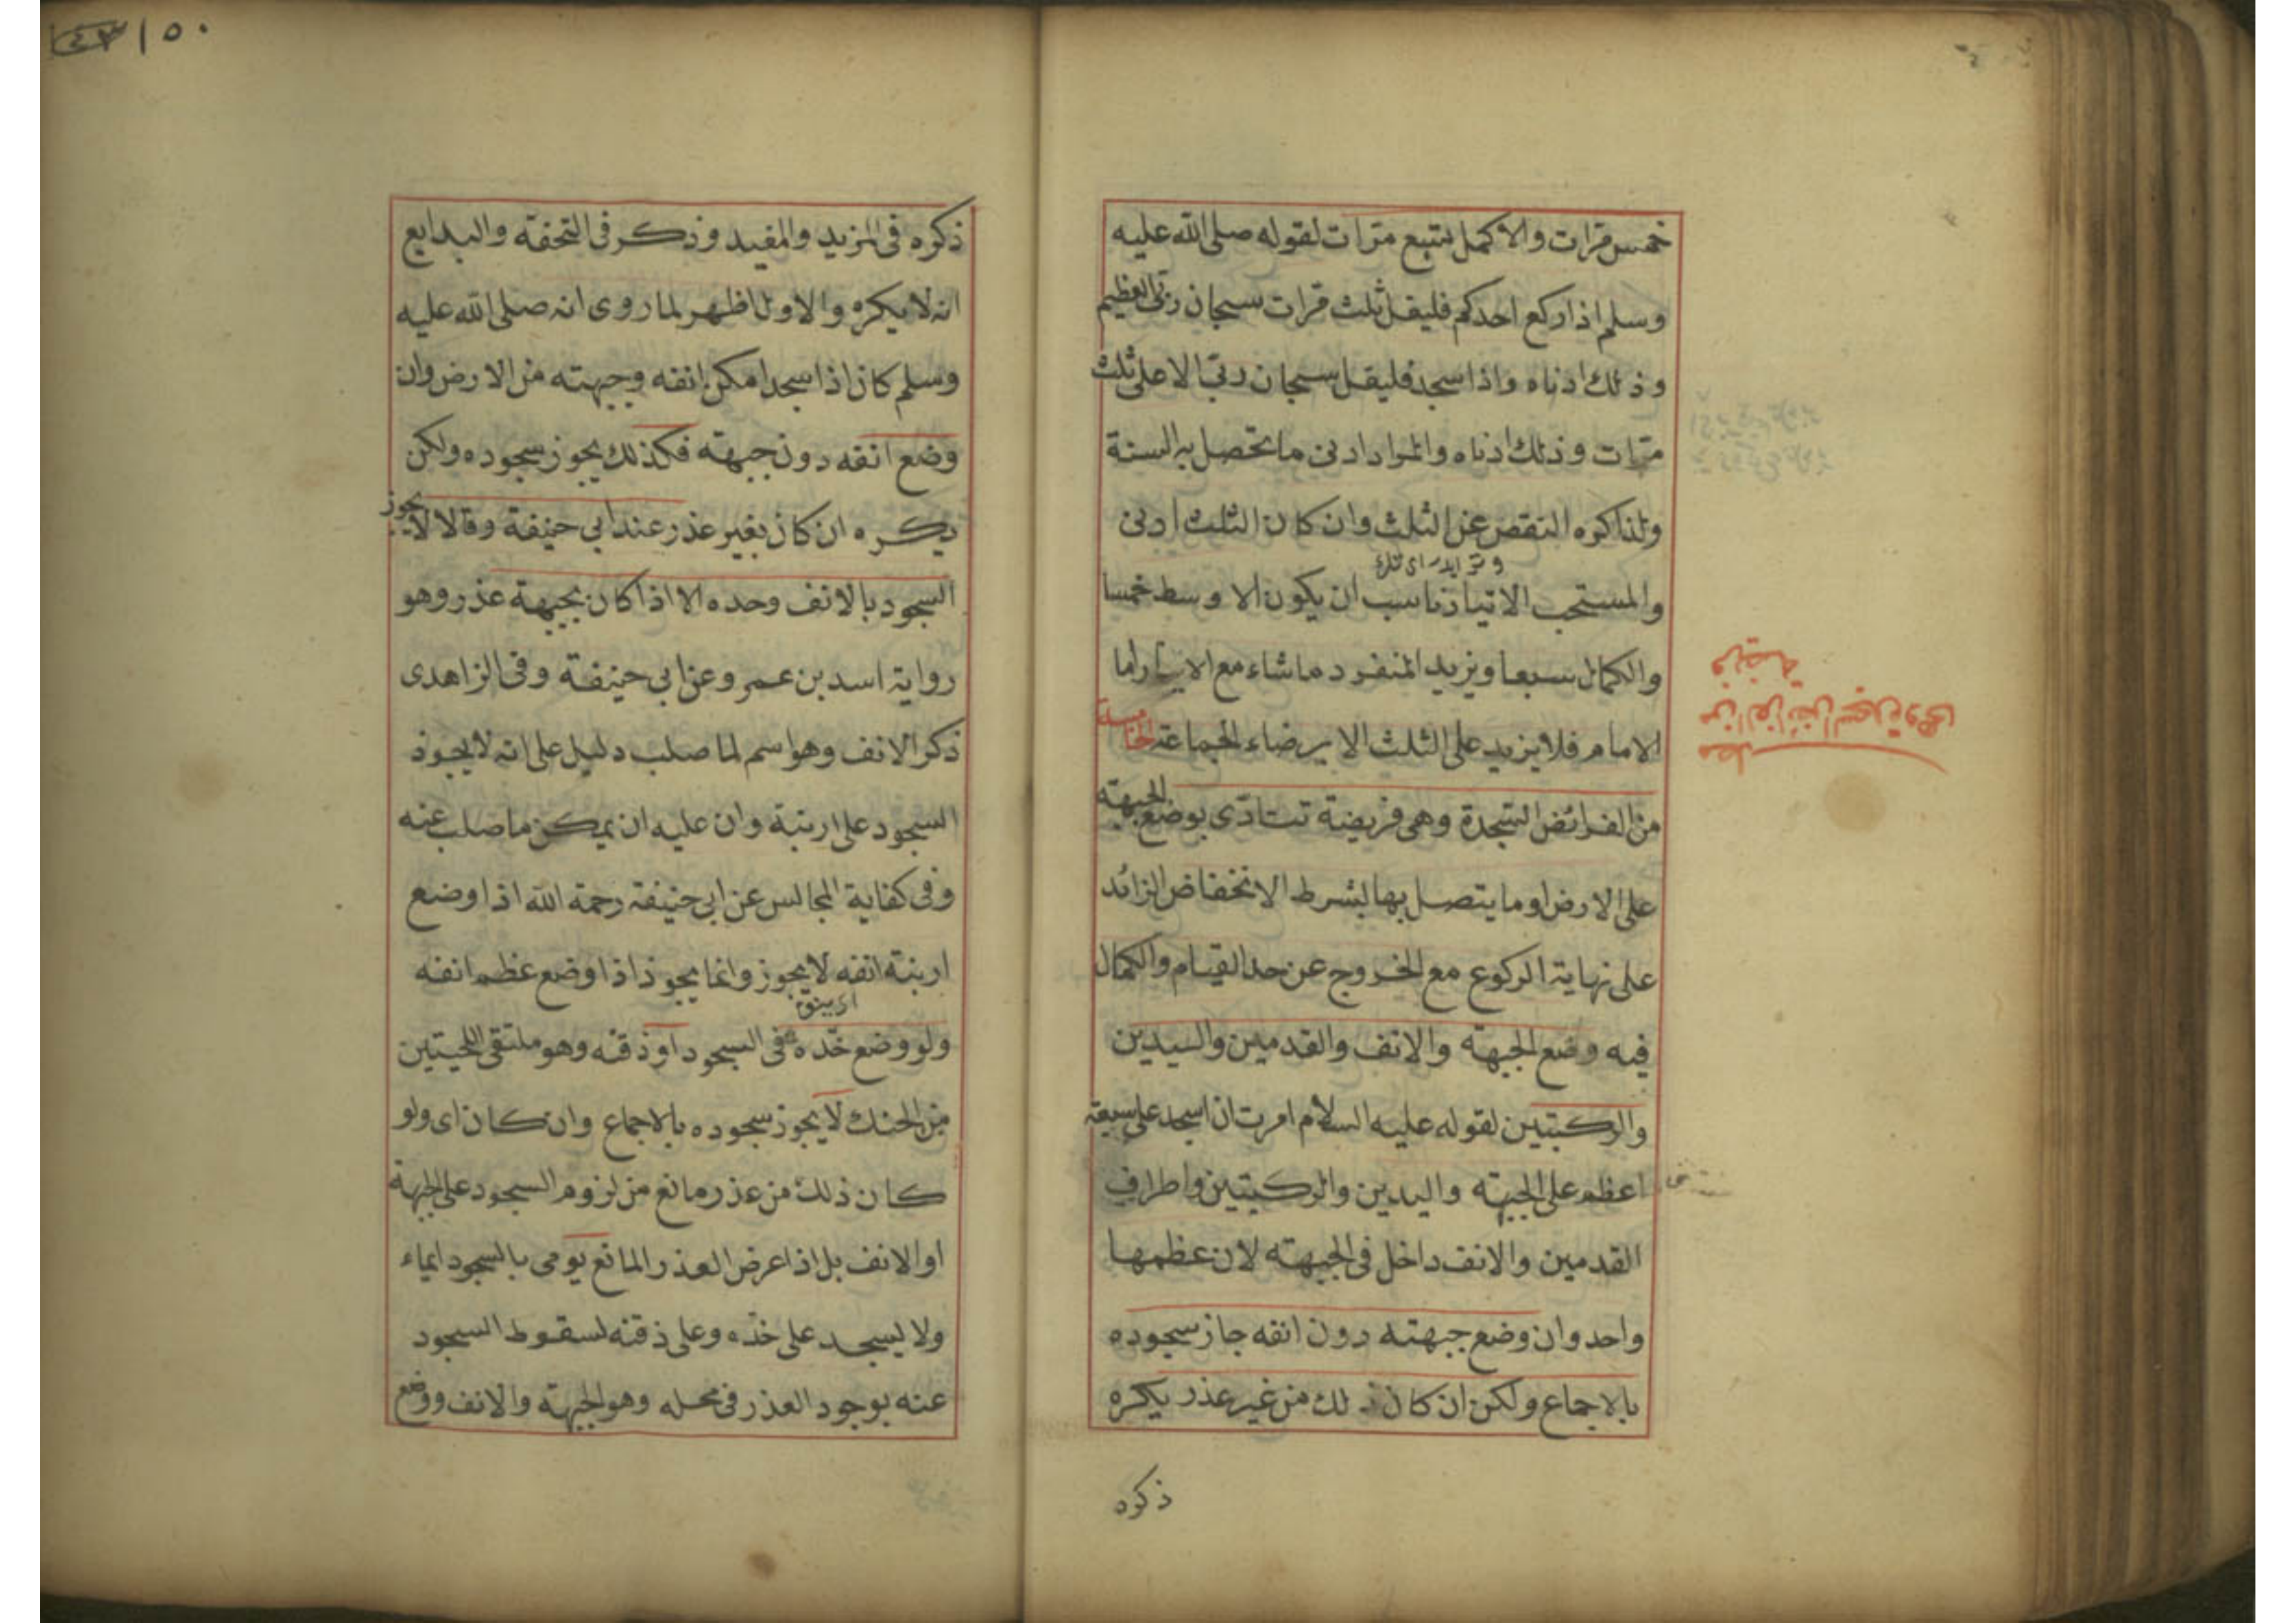 خمس مرات والاكمل سبع مرات لقوله صلى الله عليه
وسلم اذا ركع احدكم فليقل ثلث مرات سبحان ربى العظيم
وذلك ادناه واذا سجد فليقل سبحان ربى الاعلى ثلث
مرات وذلك ادناه والمراد ادنى ما تحصل به السنة
ولذا كره النقص عن الثلث وان كان الثلث ادنى
والمستحب الاتيان ناسب ان يكون الاوسط خمسا
والكمال سبعا ويزيد المنفرد ما شاء مع الايتار اما
الامام فلا يزيد على الثلث الا برضاء الجماعة الخامسة
من الفرائض السجدة وهى فريضة تتادى بوضع الجبهة
على الارض او ما يتصل بها بشرط الانخفاض الزائد
على نهاية الركوع مع الخروج عن حد القيام والكمال
فيه وضع الجبهة والانف والقدمين واليدين
والركبتين لقوله عليه السلام امرت ان اسجد على سبعة
اعظم على الجبهة واليدين والركبتين واطراف
القدمين والانف داخل فى الجبهة لان عظمها
واحد وان وضع جبهته دون انفه جاز سجوده
بالاجماع ولكن ان كان ذلك من غير عذر يكره
ذكره
من الفرائض السجدة وهى
فريضة
١٥٠
ذكره فى المزيد والمفيد وذكر فى التحفة والبدايع
انه لا يكره والاول اظهر لما روى انه صلى الله عليه
وسلم كان اذا سجد امكن انفه وجبهته من الارض وان
وضع انفه دون جبهته فكذلك يجوز سجوده ولكن
يكره ان كان بغير عذر عند ابى حنيفة وقالا لا يجوز
السجود بالانف وحده الا اذا كان بجبهة عذر وهو
رواية اسد بن عمر وعن ابى حنيفة وفى الزاهدى
ذكر الانف وهو اسم لما صلب دليل على انه لا يجوز
السجود على اربنة وان عليه ان يمكن ما صلب عنه
وفى كفاية المجالس عن ابى حنيفة رحمة الله اذا وضع
اربنة انفه لا يجوز وانما يجوز اذا وضع عظم انفه
ولو وضع خده فى السجود او ذقنه وهو ملتقى اللحيتين
من الحنك لا يجوز سجوده بالاجماع وان كان اى ولو
كان ذلك من عذر مانع من لزوم السجود على الجبهة
او الانف بل اذا عرض العذر المانع يومى بالسجود ايماء
ولا يسجد على خده وعلى ذقنه لسقوط السجود
عنه بوجود العذر فى محله وهو الجبهة والانف ووضع